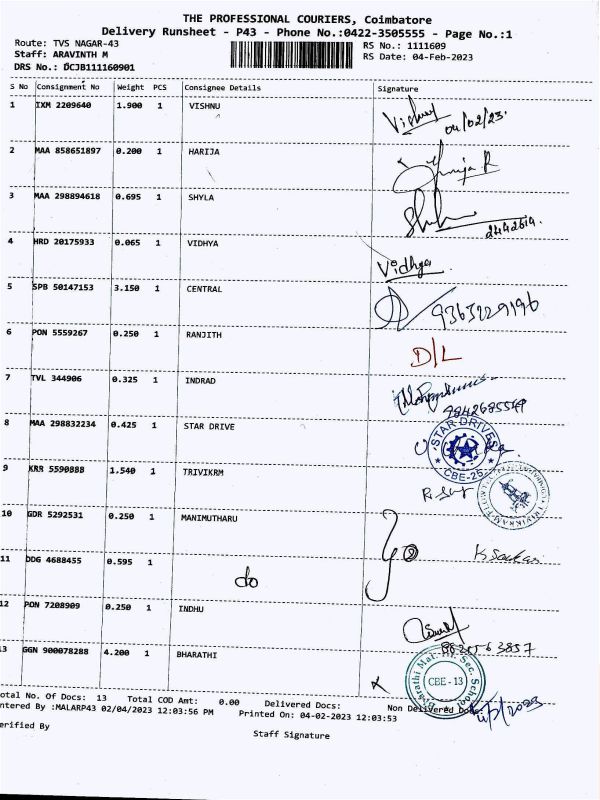 THE PROFESSIONAL COURIERS, Coimbatore
Delivery Runsheet - P43 - Phone No.:0422-3505555 - Page No.:1
Route: TVS NAGAR-43 RS No.: 1111609
Staff: ARAVINTH M RS Date: 04-Feb-2023
DRS No.: DCJB111160901
S No Consignment No Weight PCS Consignee Details Signature
1 IXM 2209640 1.900 1 VISHNU Vishnu 04/02/23.
2 MAA 858651897 0.200 1 HARIJA
3 MAA 298894618 0.695 1 SHYLA
4 HRD 20175933 0.065 1 VIDHYA Vidhya
5 SPB 50147153 3.150 1 CENTRAL 9363229196
6 PON 5559267 0.250 1 RANJITH D/L
7 TVL 344906 0.325 1 INDRAD
8 MAA 298832234 0.425 1 STAR DRIVE STAR DRIVES CBE-25
9 KRR 5590888 1.540 1 TRIVIKRM
10 GDR 5292531 0.250 1 MANIMUTHARU
11 DDG 4688455 0.595 1 do
12 PON 7208909 0.250 1 INDHU
13 GGN 900078288 4.200 1 BHARATHI Bharathi Mat. Hr. Sec. School CBE - 13
otal No. Of Docs: 13 Total COD Amt: 0.00 Delivered Docs: Non Delivered Docs:
ntered By :MALARP43 02/04/2023 12:03:56 PM Printed On: 04-02-2023 12:03:53
erified By Staff Signature